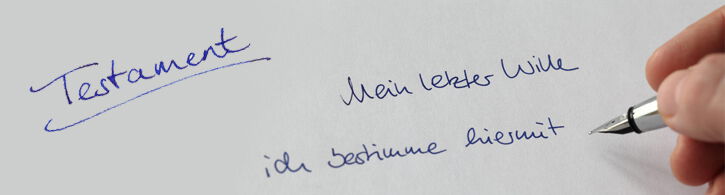 Testament
Mein letzter Wille
ich bestimme hiermit